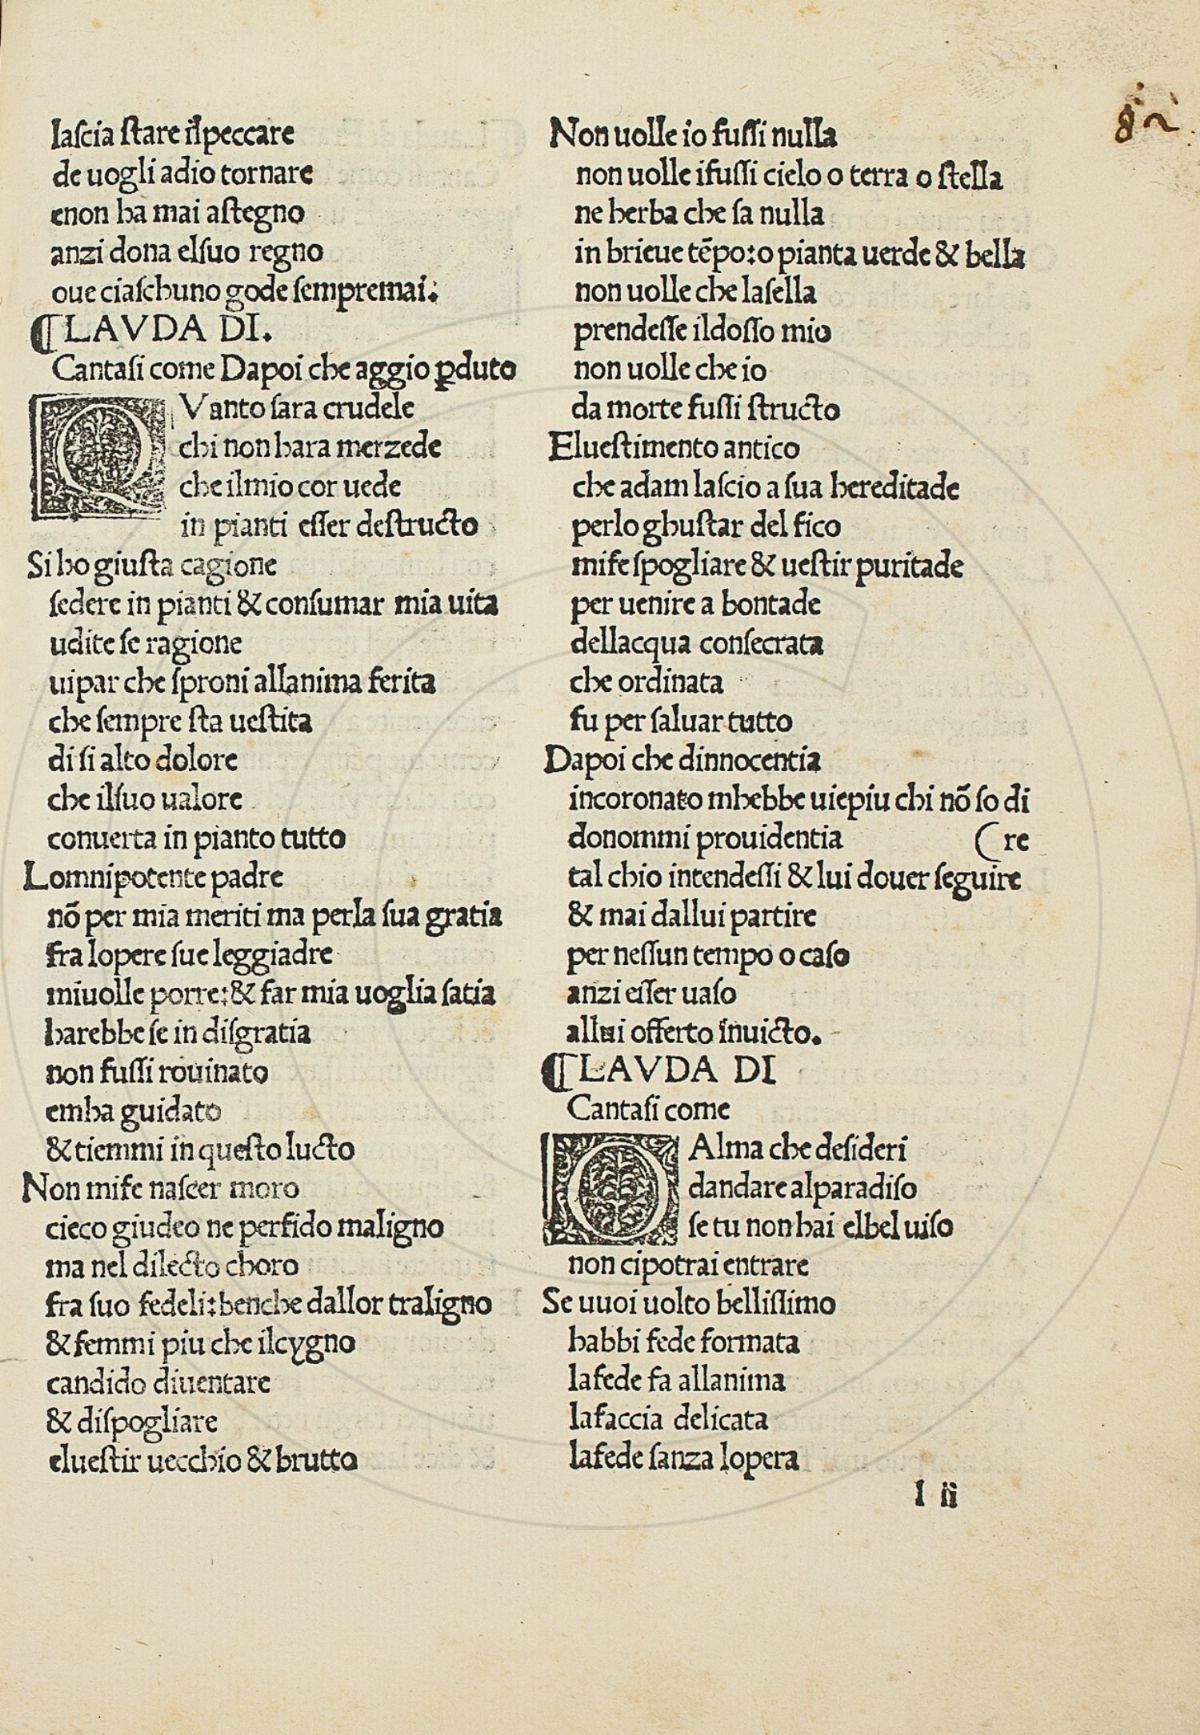 82
lascia stare ilpeccare
de uogli adio tornare
enon ha mai astegno
anzi dona elsuo regno
oue ciaschuno gode sempremai.
¶LAVDA DI.
Cantasi come Dapoi che aggio ꝑduto
QVanto sara crudele
chi non hara merzede
che ilmio cor uede
in pianti esser destructo
Si ho giusta cagione
sedere in pianti & consumar mia uita
udite se ragione
uipar che sproni allanima ferita
che sempre sta uestita
di si alto dolore
che ilsuo ualore
conuerta in pianto tutto
Lomnipotente padre
nõ per mia meriti ma perla sua gratia
fra lopere sue leggiadre
miuolle porre:& far mia uoglia satia
harebbe se in disgratia
non fussi rouinato
emha guidato
& tiemmi in questo lucto
Non mife nascer moro
cieco giudeo ne perfido maligno
ma nel dilecto choro
fra suo fedeli:benche dallor traligno
& femmi piu che ilcygno
candido diuentare
& dispogliare
eluestir uecchio & brutto
Non uolle io fussi nulla
non uolle ifussi cielo o terra o stella
ne herba che sa nulla
in brieue tẽpo:o pianta uerde & bella
non uolle che lasella
prendesse ildosso mio
non uolle che io
da morte fussi structo
Eluestimento antico
che adam lascio a sua hereditade
perlo ghustar del fico
mife spogliare & uestir puritade
per uenire a bontade
dellacqua consecrata
che ordinata
fu per saluar tutto
Dapoi che dinnocentia
incoronato mhebbe uiepiu chi nõ so di
donommi prouidentia (re
tal chio intendessi & lui douer seguire
& mai dallui partire
per nessun tempo o caso
anzi esser uaso
allui offerto inuicto.
¶LAVDA DI
Cantasi come
OAlma che desideri
dandare alparadiso
se tu non hai elbel uiso
non cipotrai entrare
Se uuoi uolto bellissimo
habbi fede formata
lafede fa allanima
lafaccia delicata
lafede sanza lopera
I ii